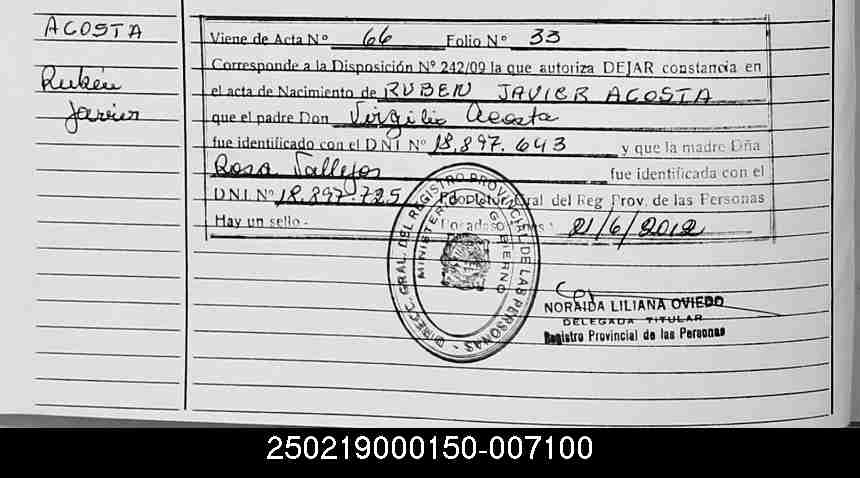 ACOSTA
Rubén
Javier
Viene de Acta Nº 66 Folio Nº 33
Corresponde a la Disposición Nº 242/09 la que autoriza DEJAR constancia en
el acta de Nacimiento de RUBEN JAVIER ACOSTA
que el padre Don Virgilio Acosta
fue identificado con el DNI Nº 18.897.643 y que la madre Dña
Rosa Vallejos fue identificada con el
DNI Nº 18.897.725 Fdo Director Gral del Reg Prov. de las Personas
Hay un sello.- Posadas Mnes: 21/6/2012
DIRECC. GRAL. DEL REGISTRO PROVINCIAL DE LAS PERSONAS -
MINISTERIO GOBIERNO
NORAIDA LILIANA OVIEDO
DELEGADA TITULAR
Registro Provincial de las Personas
250219000150-007100